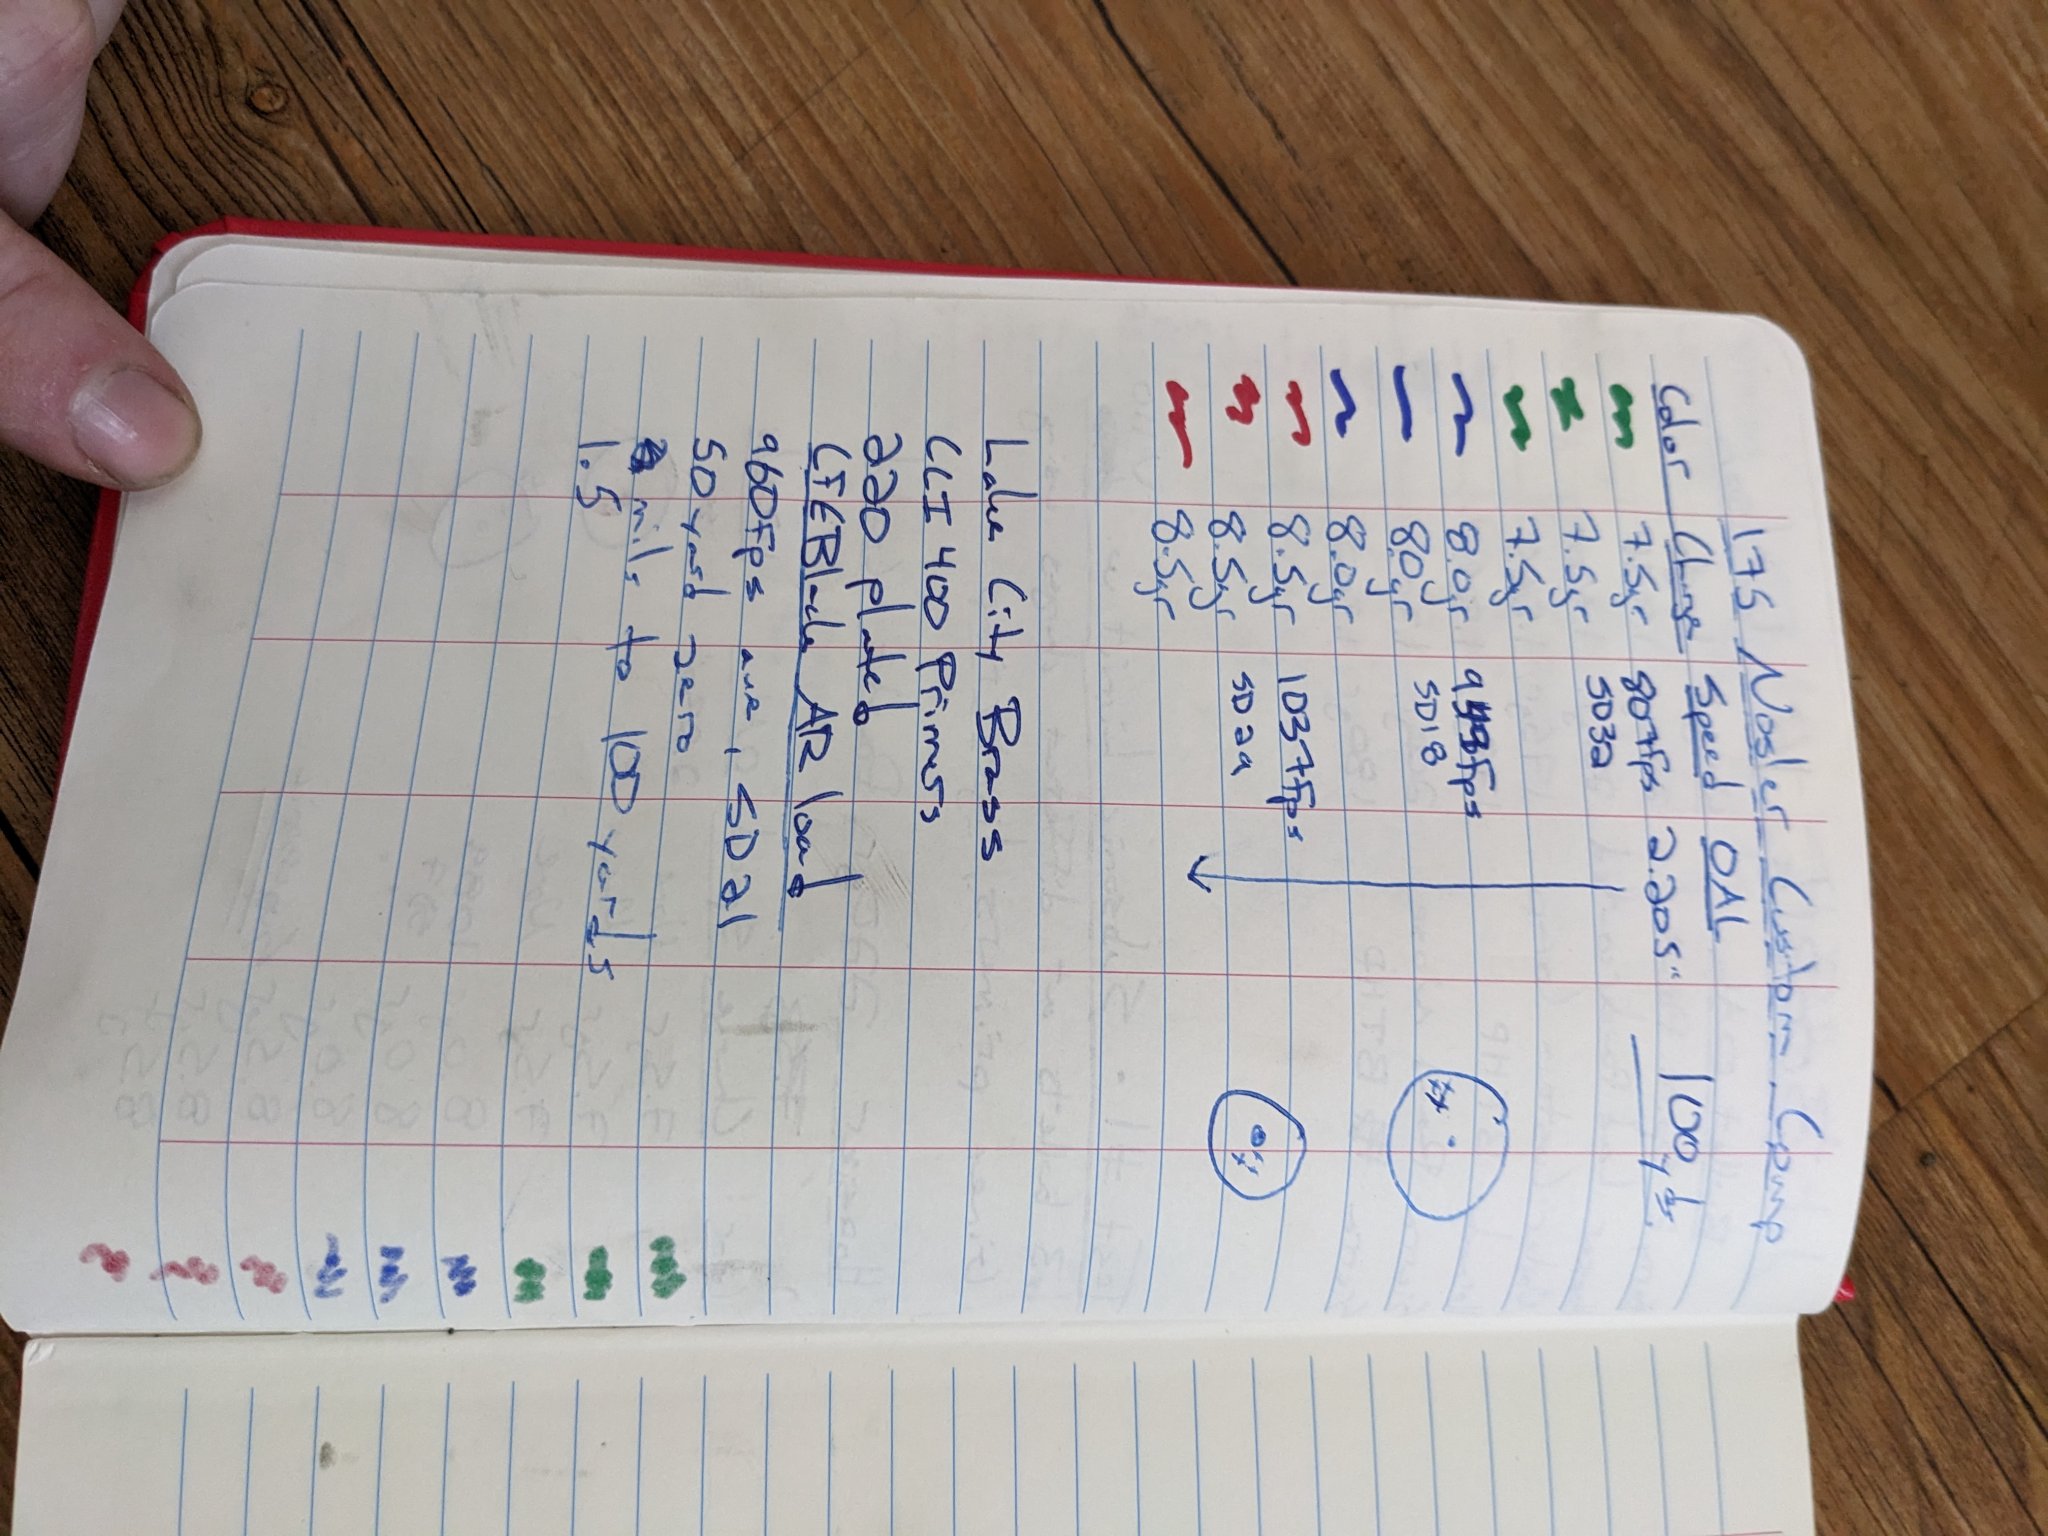 175 Nosler Custom Comp
Color Charge Speed OAL 100 yds
7.5gr 807fps 2.205"
7.5gr SD32
7.5gr
8.0gr fps
8.0gr SD18
8.0gr
8.5gr 1037fps
8.5gr SD29
8.5gr
Lake City Brass
CCI 400 Primers
220 plated
CFEBlack AR load
960fps ave, SD21
50 yard zero
mils to 100 yards
1.5